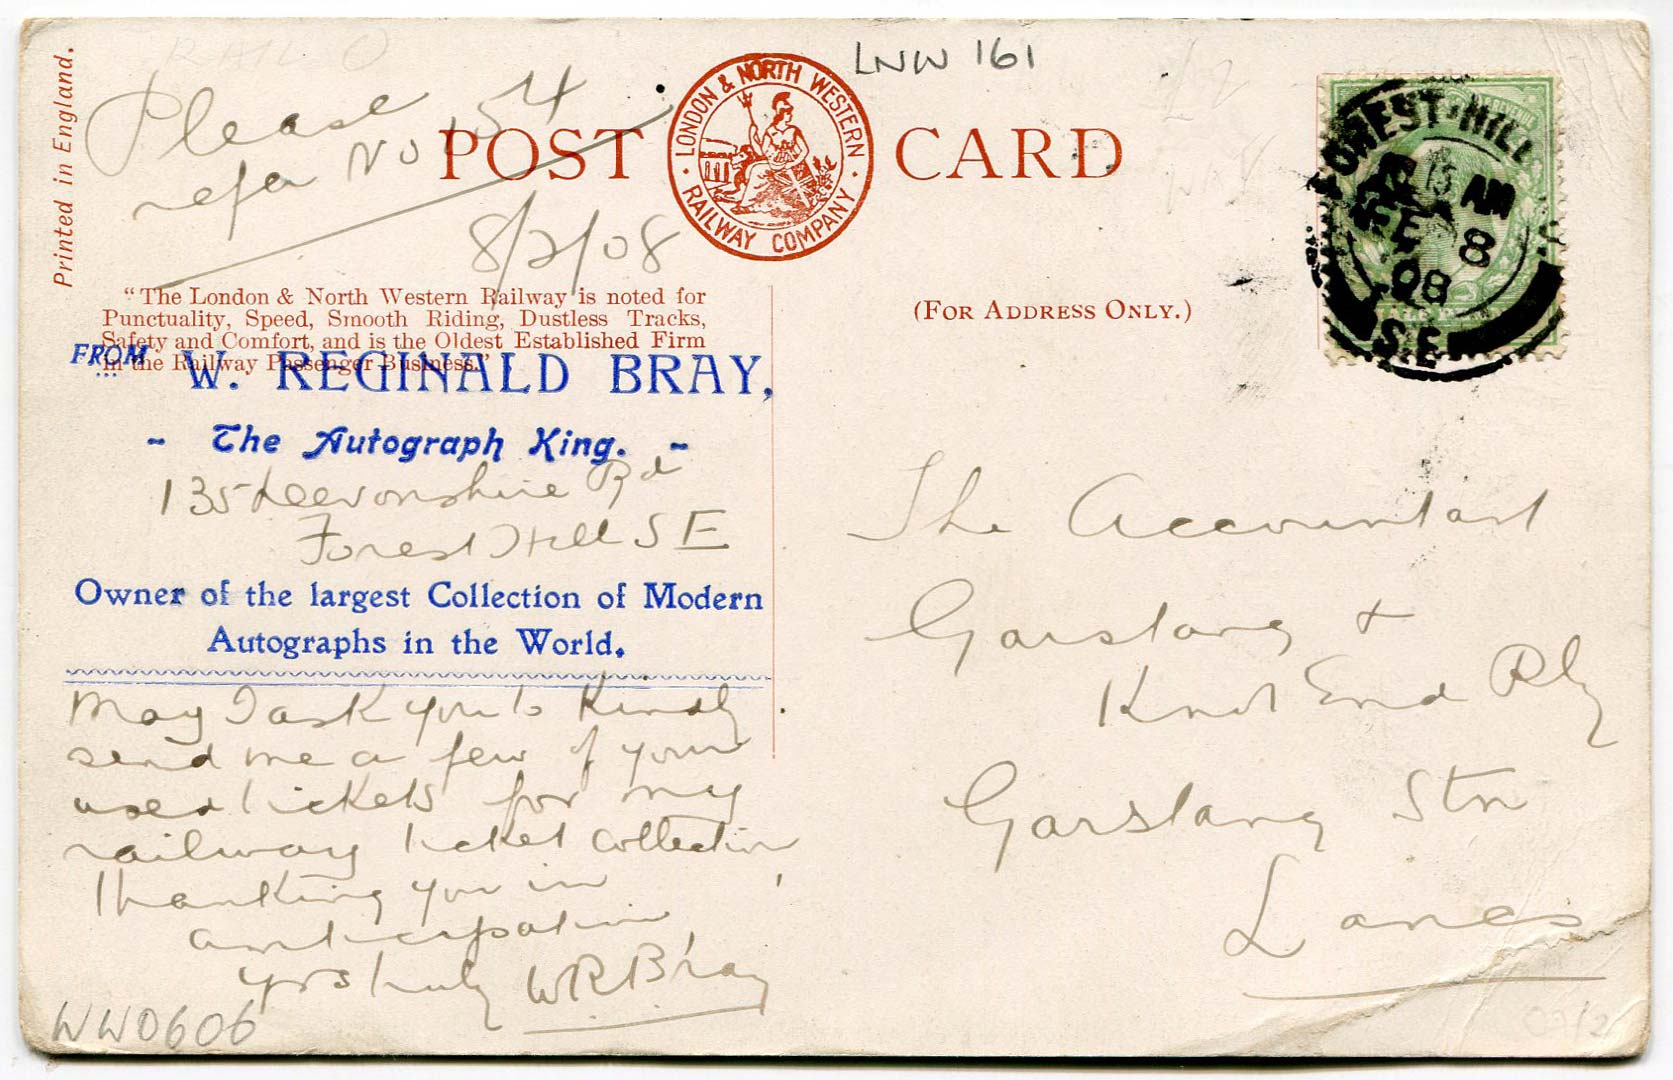 Printed in England.
Please
refer No 154
8/2/08
LNW 161
POST CARD
LONDON & NORTH WESTERN RAILWAY COMPANY
"The London & North Western Railway is noted for
Punctuality, Speed, Smooth Riding, Dustless Tracks,
Safety and Comfort, and is the Oldest Established Firm
in the Railway Passenger Business."
FROM W. REGINALD BRAY,
- The Autograph King. -
135 Devonshire Rd
Forest Hill S E
Owner of the largest Collection of Modern
Autographs in the World.
May I ask you to kindly
send me a few of your
used tickets for my
railway ticket collection
Thanking you in
anticipation,
yrs truly WRBray
WW0606
(FOR ADDRESS ONLY.)
FOREST HILL
15 AM
FE 8
08
S.E
The Accountant
Garstang +
Knot End Rly
Garstang Stn
Lancs